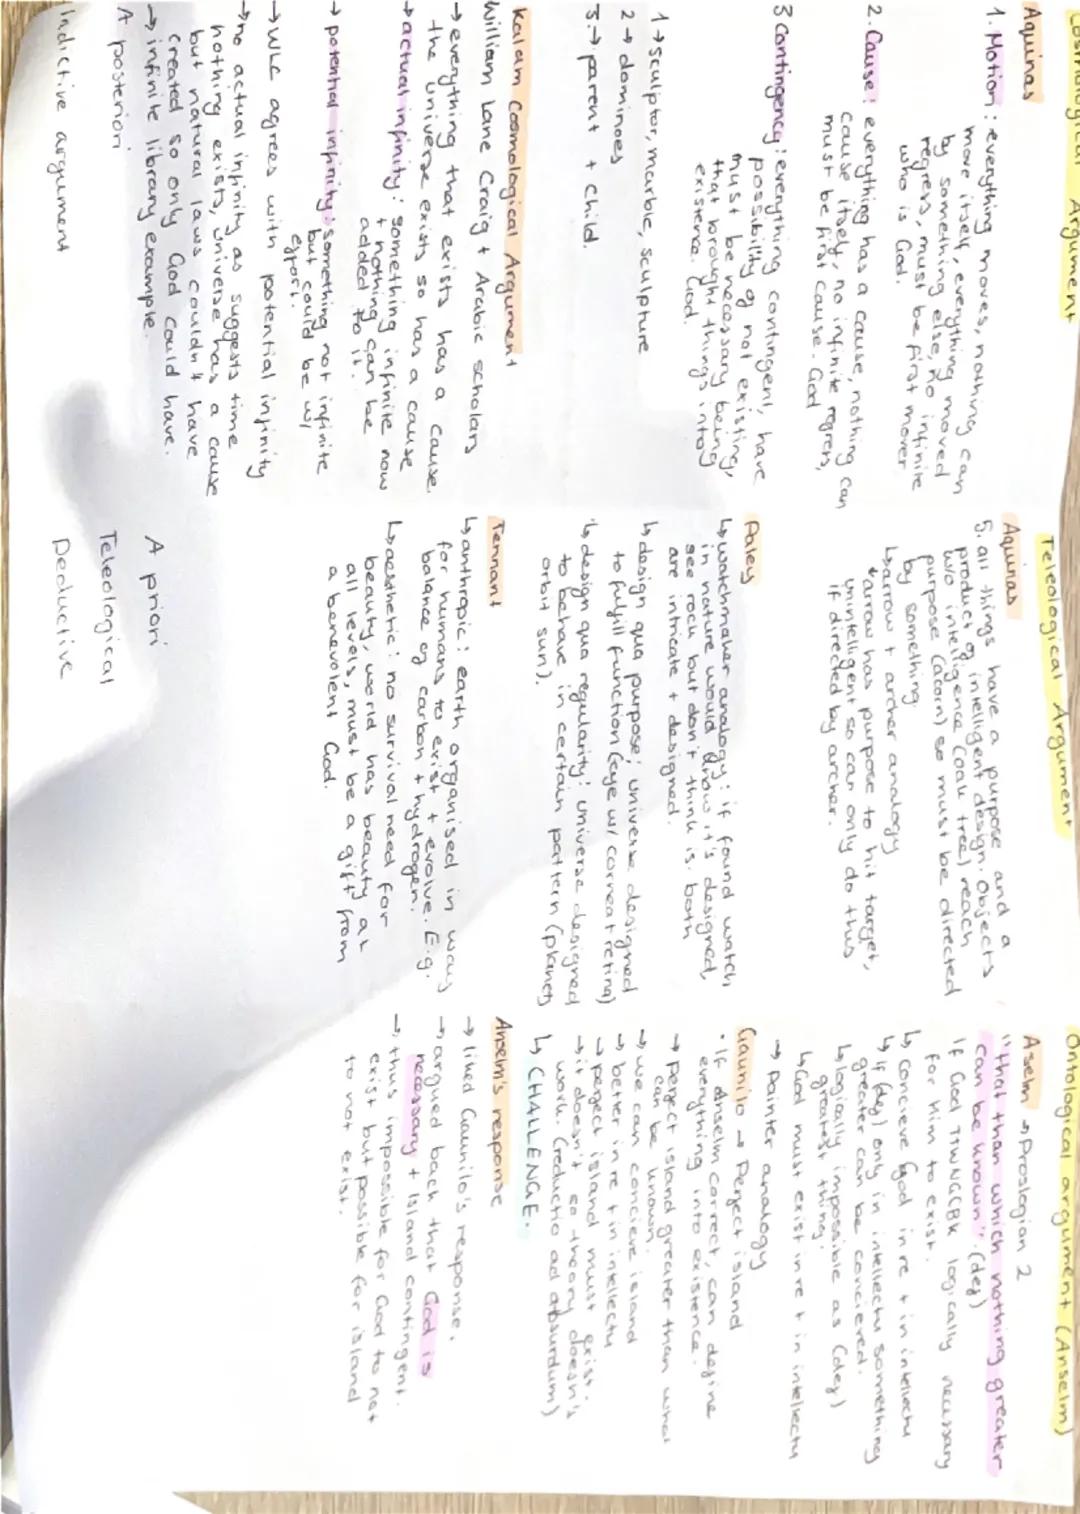 Cosmological Argument
Aquinas
1. Motion: everything moves, nothing can
move itself, everything moved
by something else, no infinite
regress, must be first mover
who is God.
2. Cause: everything has a cause, nothing can
cause itself, no infinite regress,
must be first cause. God
3 Contingency: everything contingent, have
possibility of not existing,
must be necessary being
that brought things into
existence. God.
1 → sculptor, marble, sculpture
2 → dominoes
3 → parent + child.
Kalam Cosmological Argument
William Lane Craig + Arabic scholars
→ everything that exists has a cause.
the universe exists so has a cause
→ actual infinity: something infinite now
+ nothing can be
added to it.
→ potential infinity: something not infinite
but could be w/
effort.
→ WLC agrees with potential infinity
→ no actual infinity as suggests time
nothing exists, universe has a cause
but natural laws couldn't have
created so only God could have.
→ infinite library example.
A posteriori
Indictive argument
Teleological Argument
Aquinas
5. all things have a purpose and a
product of intelligent design. Objects
w/o intelligence (oak tree) reach
purpose (acorn) so must be directed
by something.
↳ arrow + archer analogy
arrow has purpose to hit target,
unintelligent so can only do thus
if directed by archer.
Paley
↳ watchmaker analogy: if found watch
in nature would know it's designed,
see rock but don't think is. both
are intricate + designed.
↳ design qua purpose: universe designed
to fulfill function (eye w/ cornea + retina)
↳ design qua regularity: universe designed
to behave in certain pattern (planets
orbit sun).
Tennant
↳ anthropic: earth organised in way
for humans to exist + evolve. E.g.
balance of carbon + hydrogen.
↳ aesthetic: no survival need for
beauty, world has beauty at
all levels, must be a gift from
a benevolent God.
A priori
Teleological
Deductive
Ontological argument (Anselm)
Aselm → Proslogian 2
"that than which nothing greater
can be known". (def)
If God TTWNGCBK logically necessary
for Him to exist.
↳ concieve God in re + in intellectu
↳ if (def) only in intellectu something
greater can be concieved.
↳ logically impossible as (def)
greatest thing.
↳ God must exist in re + in intellectu
→ Painter analogy
Gaunilo → Perfect island
• If Anselm correct, can define
everything into existence.
→ perfect island greater than what
can be known.
→ we can concieve island
→ better in re + in intellectu
→ perfect island must exist.
→ it doesn't so theory doesn't
work. (reductio ad absurdum)
↳ CHALLENGE.
Anselm's response
→ liked Gaunilo's response.
→ argued back that God is
necessary + Island contingent.
→ thus impossible for God to not
exist but possible for island
to not exist.